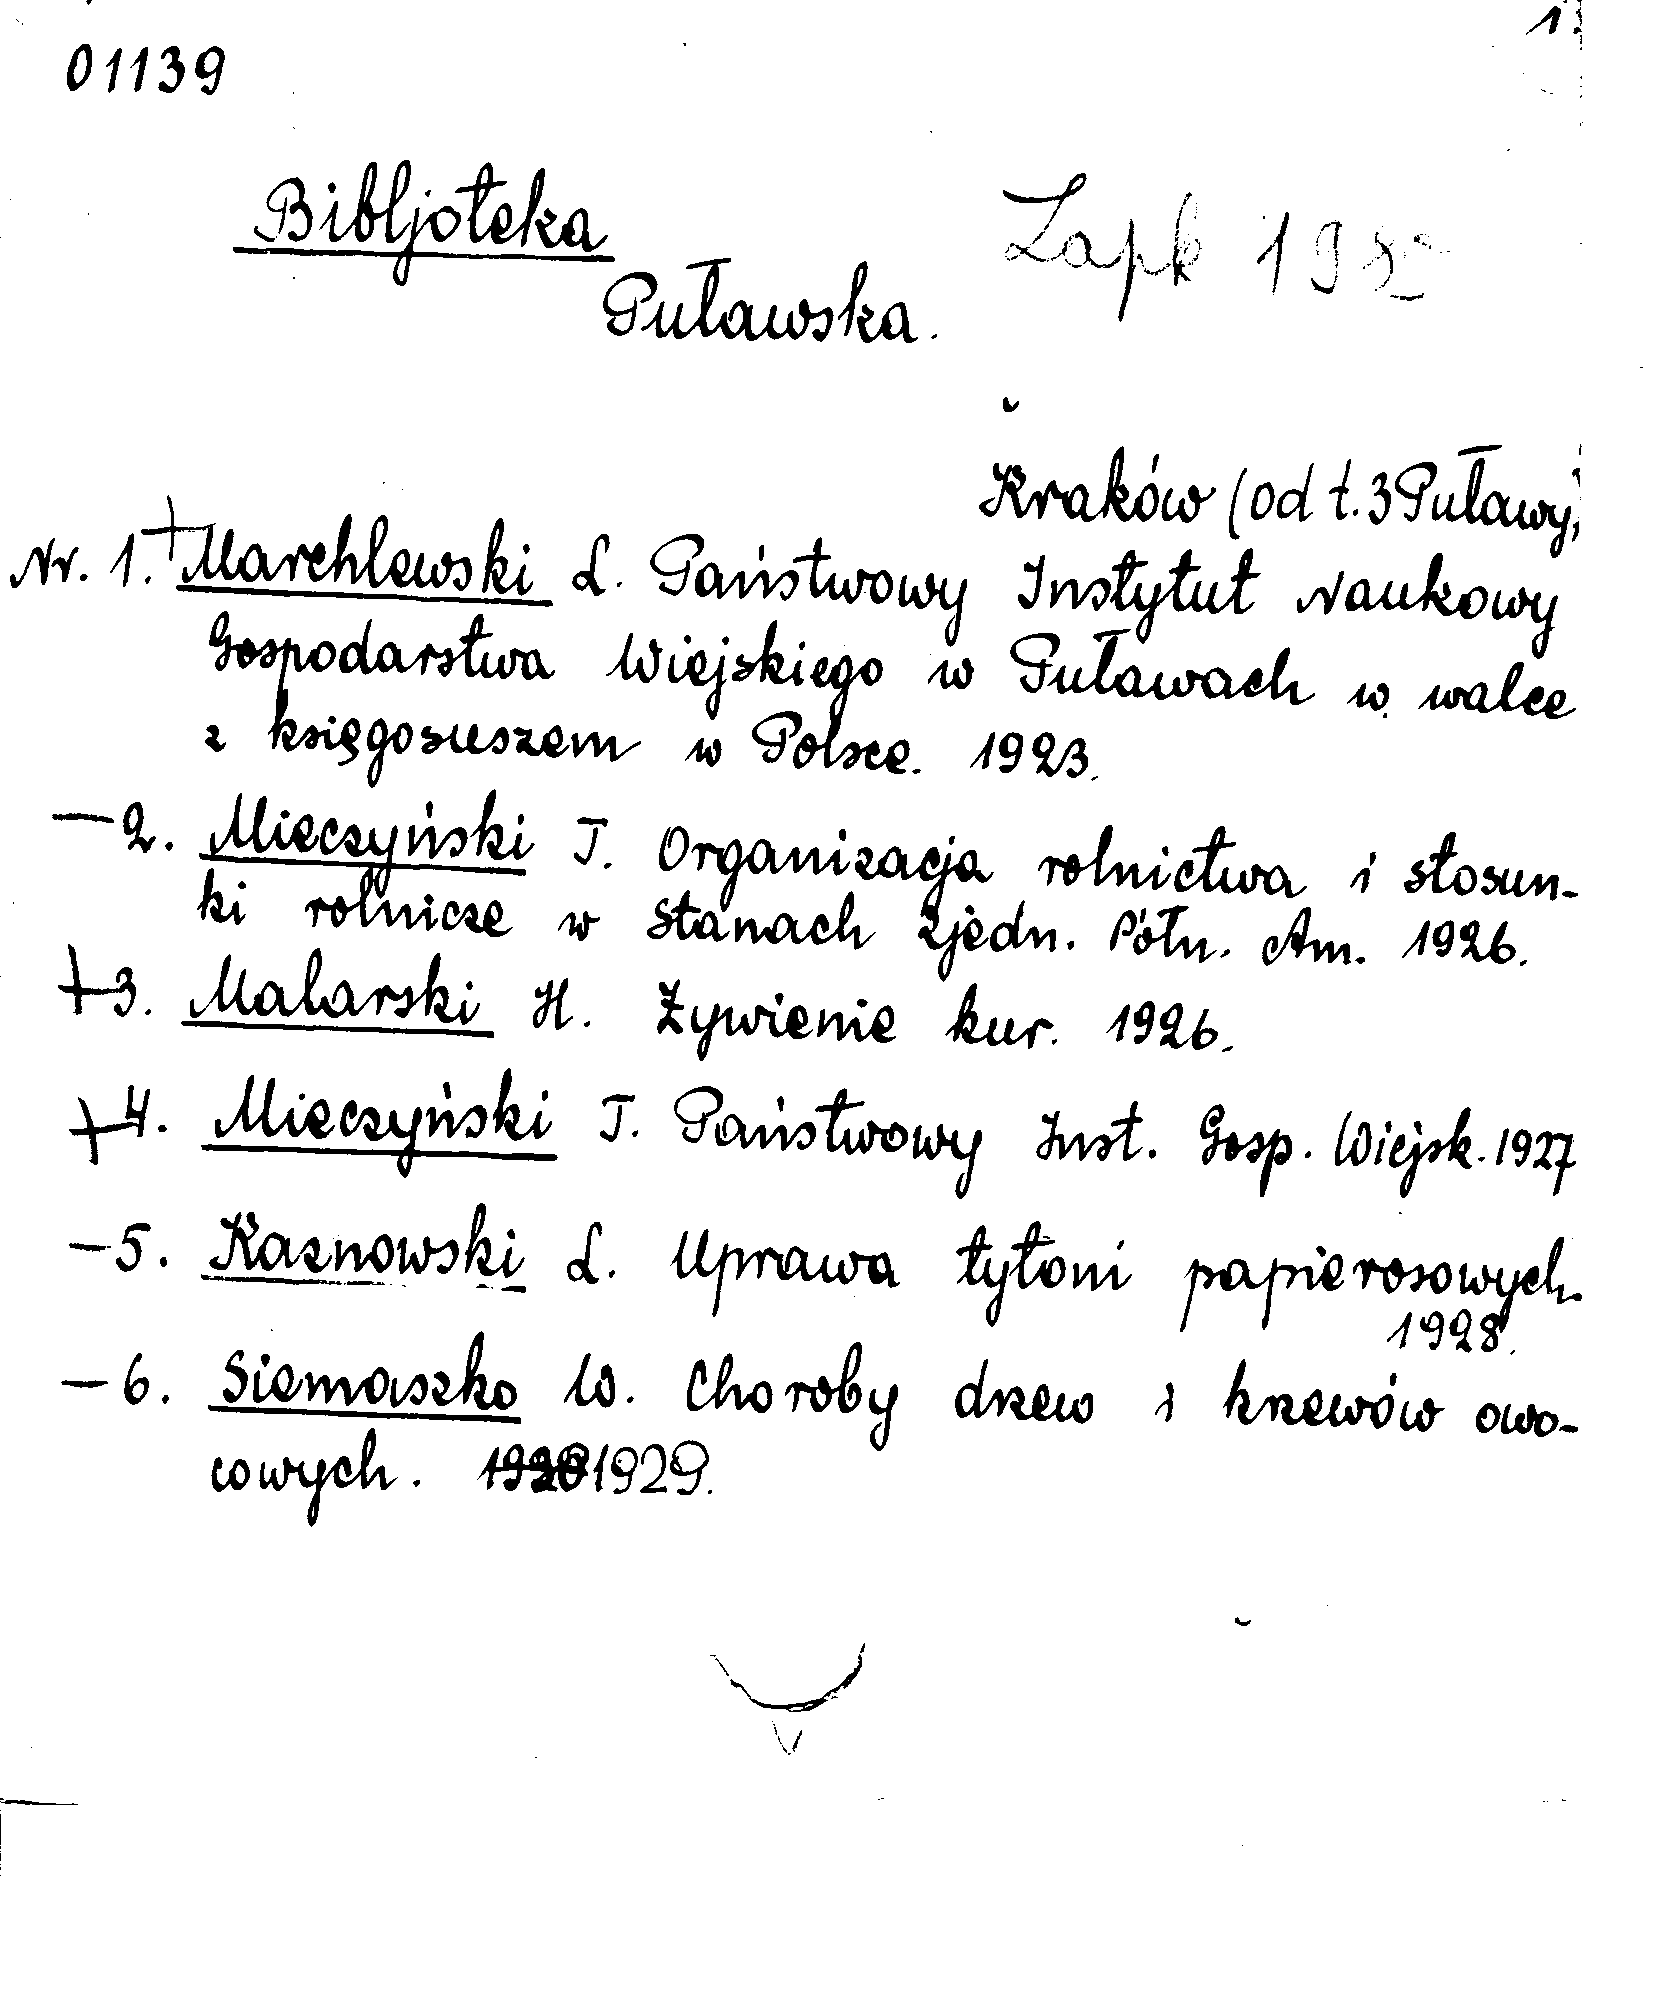 1.
01139
Bibljoteka
Puławska.
Zapk 19
Kraków (od t. 3 Puławy)
Nr. 1. + Marchlewski L. Państwowy Instytut Naukowy
Gospodarstwa Wiejskiego w Puławach w walce
z księgosuszem w Polsce. 1923.
— 2. Mieczyński T. Organizacja rolnictwa i stosun-
ki rolnicze w Stanach Zjedn. Półn. Am. 1926.
+ 3. Malarski H. Żywienie kur. 1926.
+ 4. Mieczyński T. Państwowy Inst. Gosp. Wiejsk. 1927
— 5. Kaznowski L. Uprawa tytoni papierosowych.
1928.
— 6. Siemaszko W. Choroby drzew i krzewów owo-
cowych. 1929.